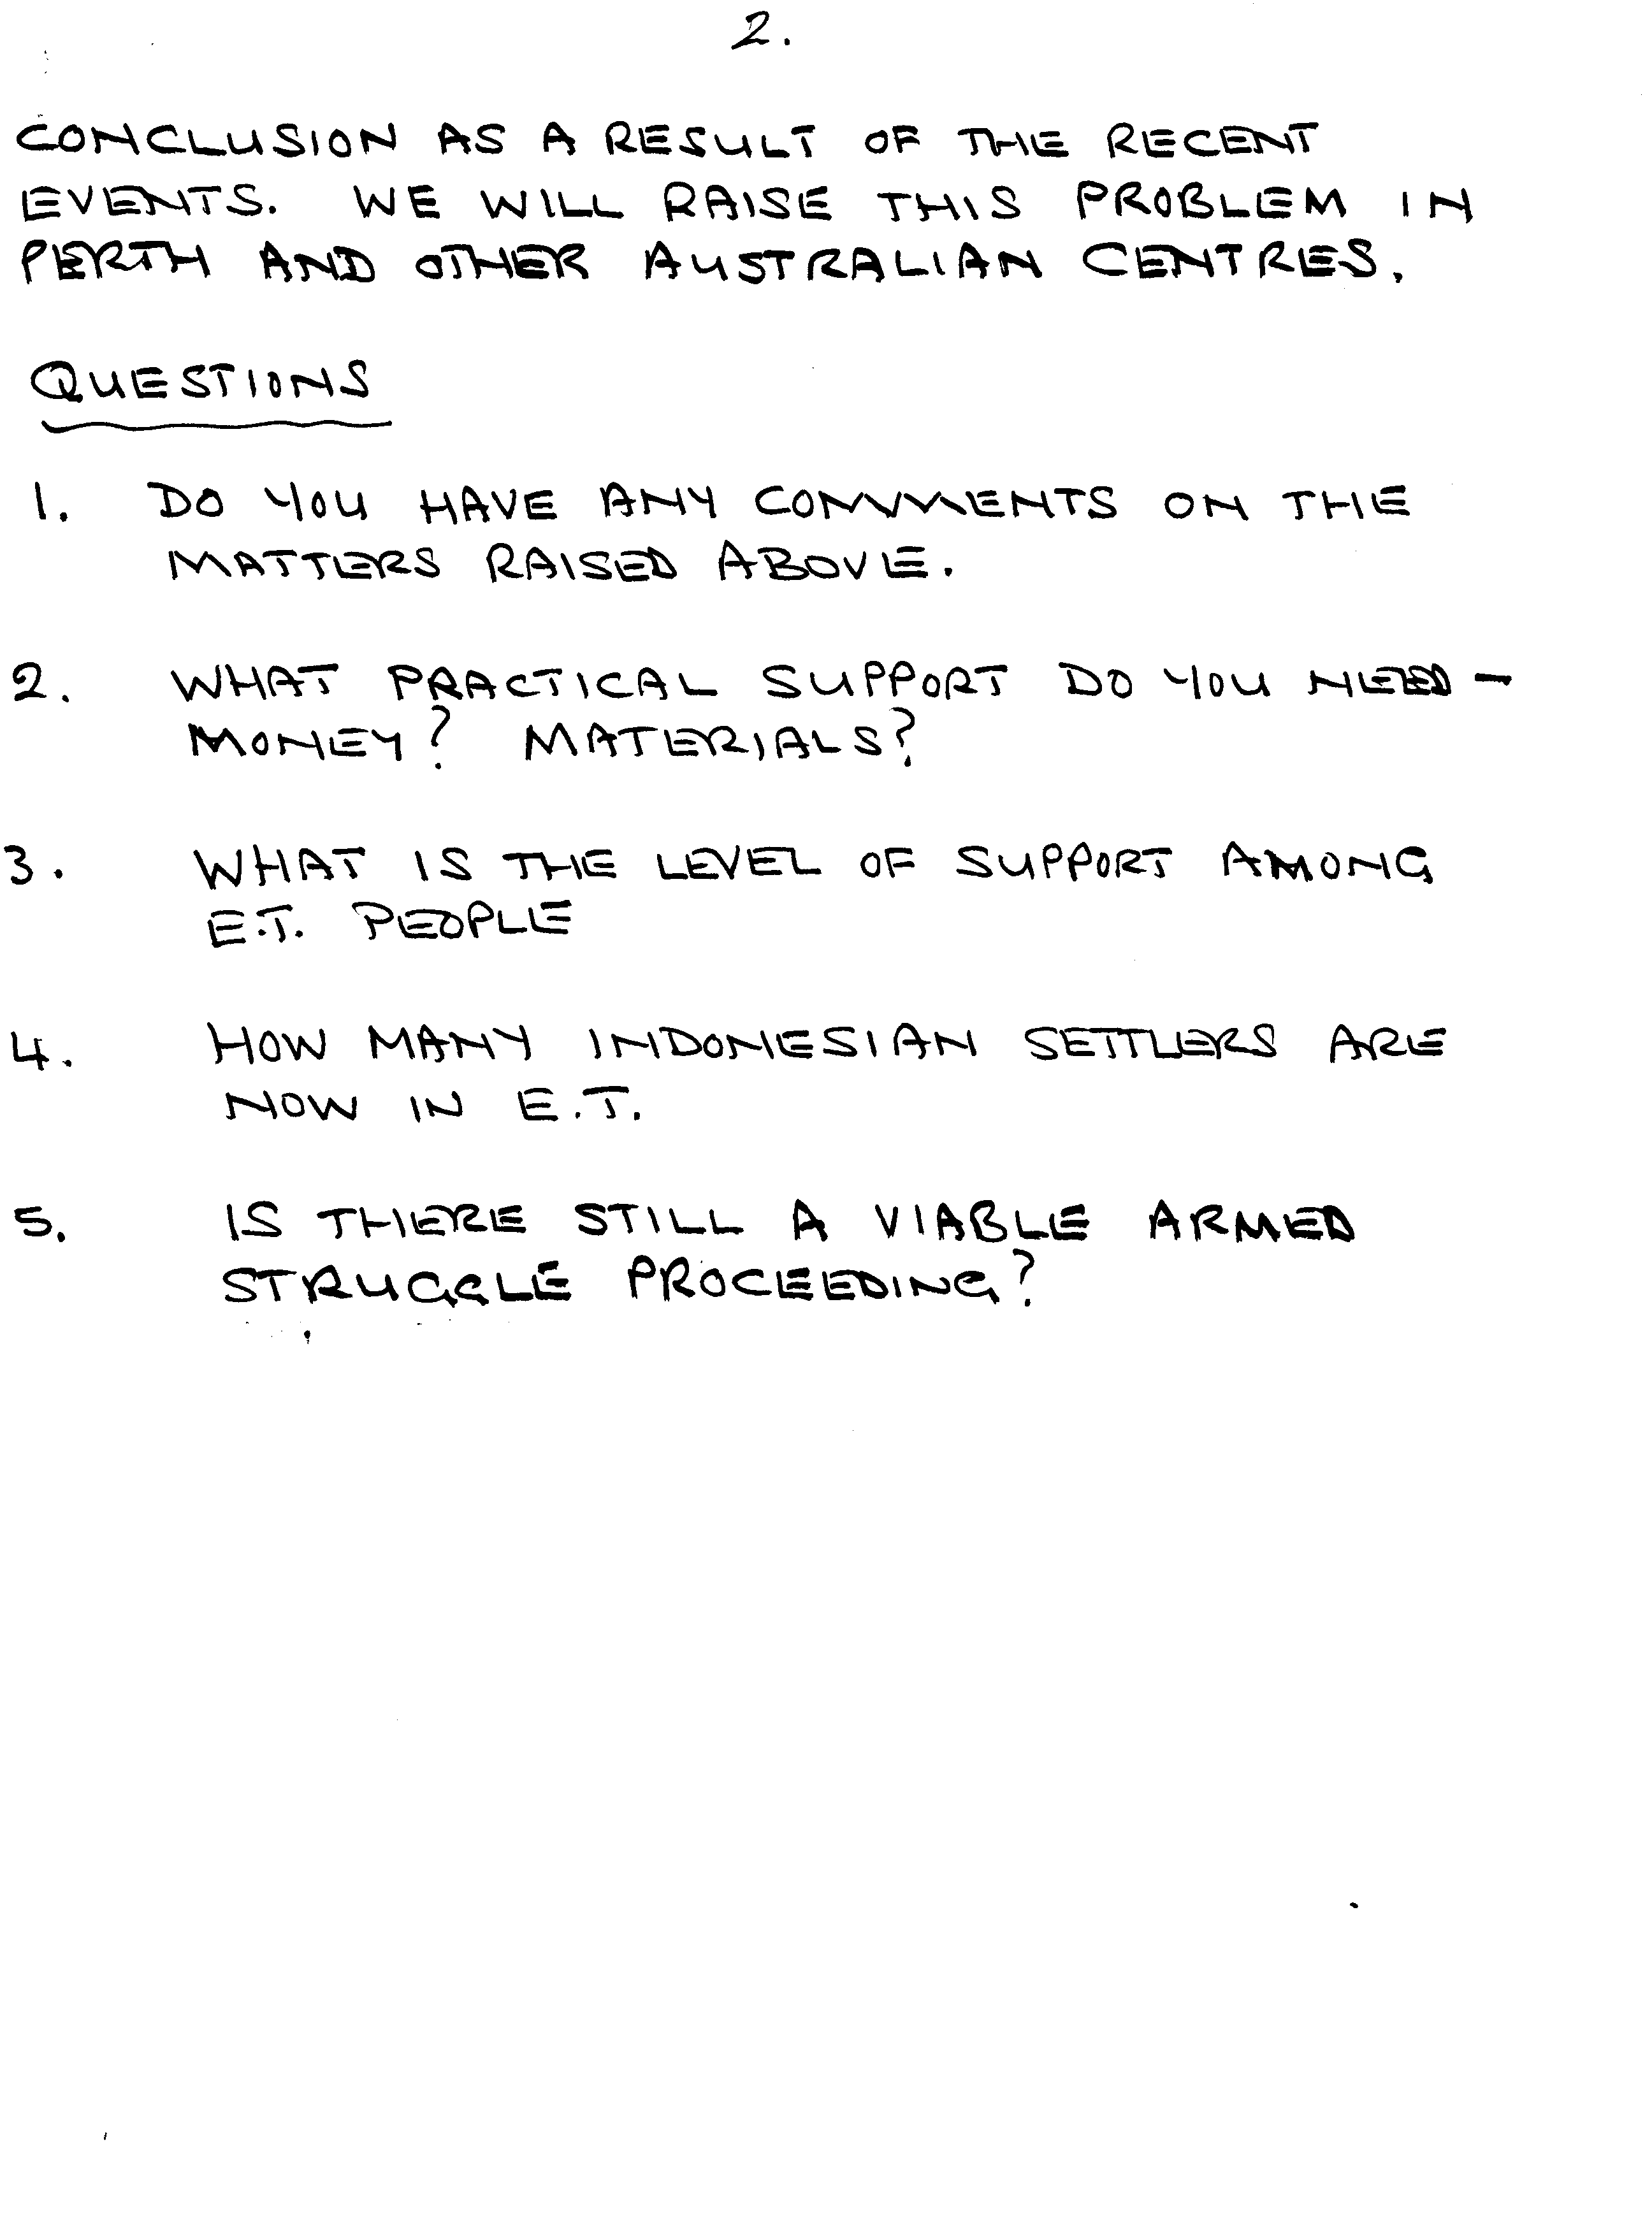 2.
CONCLUSION AS A RESULT OF THE RECENT
EVENTS. WE WILL RAISE THIS PROBLEM IN
PERTH AND OTHER AUSTRALIAN CENTRES.
QUESTIONS
1. DO YOU HAVE ANY COMMENTS ON THE
MATTERS RAISED ABOVE.
2. WHAT PRACTICAL SUPPORT DO YOU NEED -
MONEY? MATERIALS?
3. WHAT IS THE LEVEL OF SUPPORT AMONG
E.T. PEOPLE
4. HOW MANY INDONESIAN SETTLERS ARE
NOW IN E.T.
5. IS THERE STILL A VIABLE ARMED
STRUGGLE PROCEEDING?